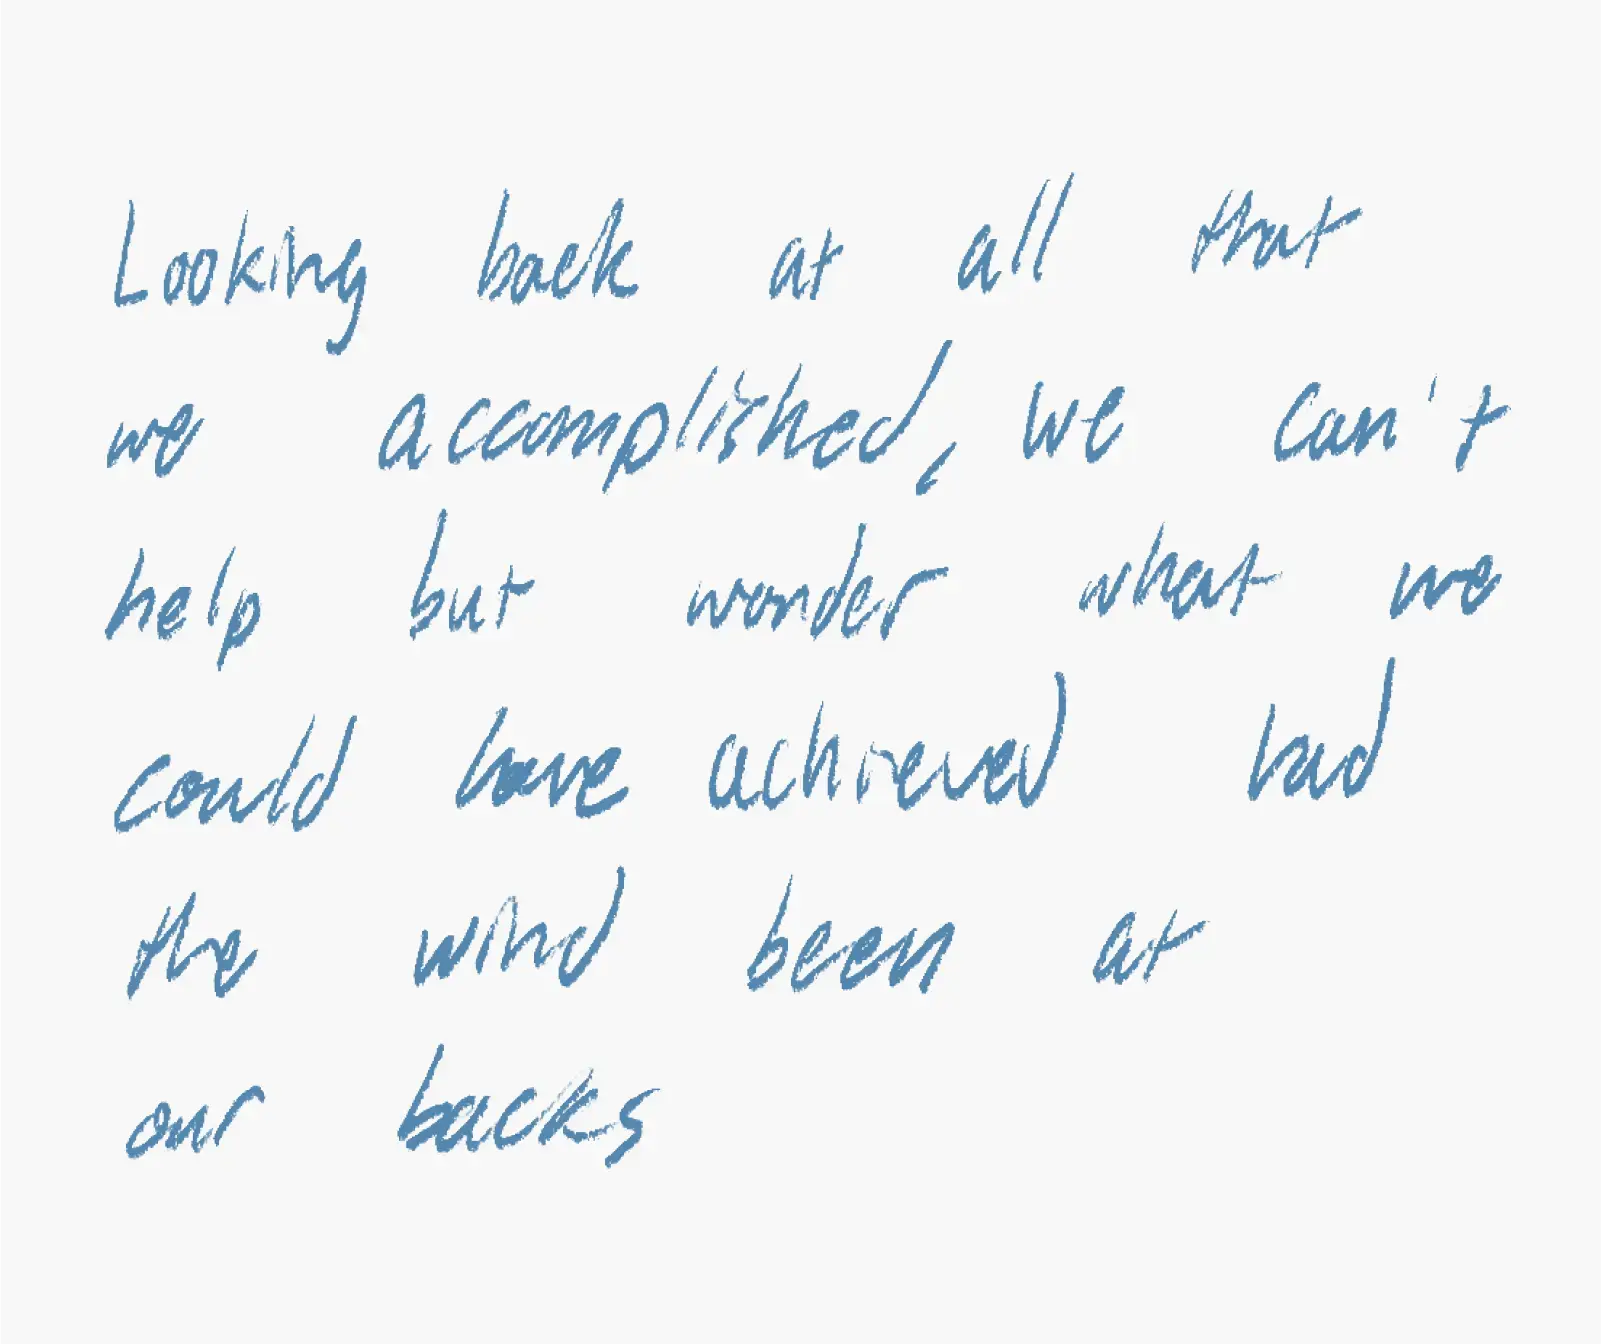 Looking back at all that
we accomplished, we can't
help but wonder what we
could have achieved had
the wind been at
our backs